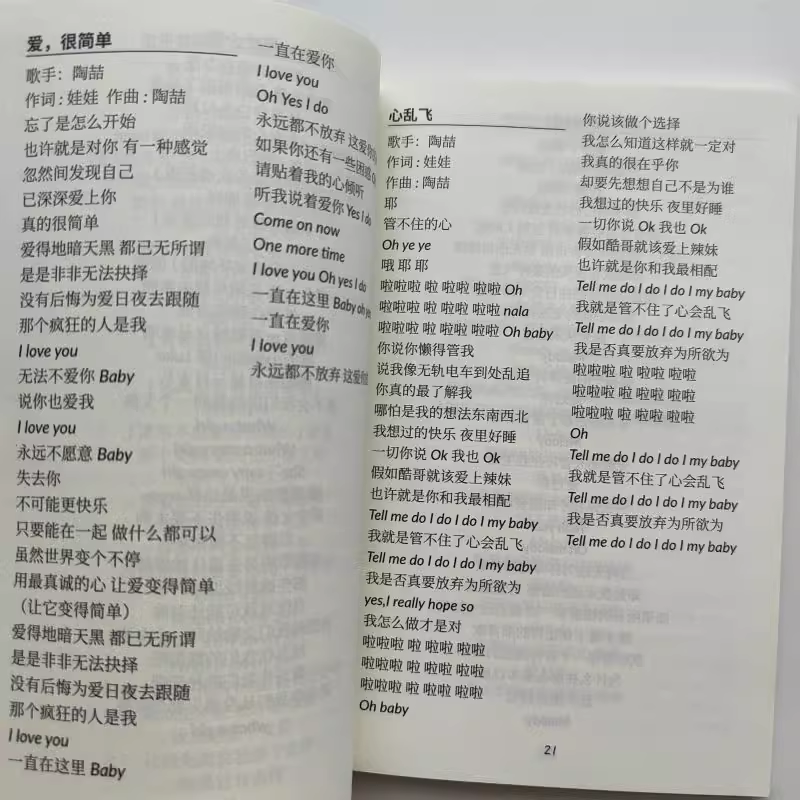 爱，很简单
歌手：陶喆
作词：娃娃 作曲：陶喆
忘了是怎么开始
也许就是对你 有一种感觉
忽然间发现自己
已深深爱上你
真的很简单
爱得地暗天黑 都已无所谓
是是非非无法抉择
没有后悔为爱日夜去跟随
那个疯狂的人是我
I love you
无法不爱你 Baby
说你也爱我
I love you
永远不愿意 Baby
失去你
不可能更快乐
只要能在一起 做什么都可以
虽然世界变个不停
用最真诚的心 让爱变得简单
（让它变得简单）
爱得地暗天黑 都已无所谓
是是非非无法抉择
没有后悔为爱日夜去跟随
那个疯狂的人是我
I love you
一直在这里 Baby
一直在爱你
I love you
Oh Yes I do
永远都不放弃 这爱你
如果你还有一些困惑
请贴着我的心倾听
听我说着爱你 Yes I do
Come on now
One more time
I love you Oh yes I do
一直在这里 Baby oh
一直在爱你
I love you
永远都不放弃 这爱你
心乱飞
歌手：陶喆
作词：娃娃
作曲：陶喆
耶
管不住的心
Oh ye ye
哦 耶 耶
啦啦啦 啦 啦啦 啦啦 Oh
啦啦啦 啦 啦啦 啦啦 nala
啦啦啦 啦 啦啦 啦啦 Oh baby
你说你懒得管我
说我像无轨电车到处乱追
你真的最了解我
哪怕是我的想法东南西北
我想过的快乐 夜里好睡
一切你说 Ok 我也 Ok
假如酷哥就该爱上辣妹
也许就是你和我最相配
Tell me do I do I do I my baby
我就是管不住了心会乱飞
Tell me do I do I do I my baby
我是否真要放弃为所欲为
yes,I really hope so
我怎么做才是对
啦啦啦 啦 啦啦 啦啦
啦啦啦 啦 啦啦 啦啦
啦啦啦 啦 啦啦 啦啦
Oh baby
你说该做个选择
我怎么知道这样就一定对
我真的很在乎你
却要先想想自己不是为谁
我想过的快乐 夜里好睡
一切你说 Ok 我也 Ok
假如酷哥就该爱上辣妹
也许就是你和我最相配
Tell me do I do I do I my baby
我就是管不住了心会乱飞
Tell me do I do I do I my baby
我是否真要放弃为所欲为
啦啦啦 啦 啦啦 啦啦
啦啦啦 啦 啦啦 啦啦
啦啦啦 啦 啦啦 啦啦
Oh
Tell me do I do I do I my baby
我就是管不住了心会乱飞
Tell me do I do I do I my baby
我是否真要放弃为所欲为
Tell me do I do I do I my baby
21